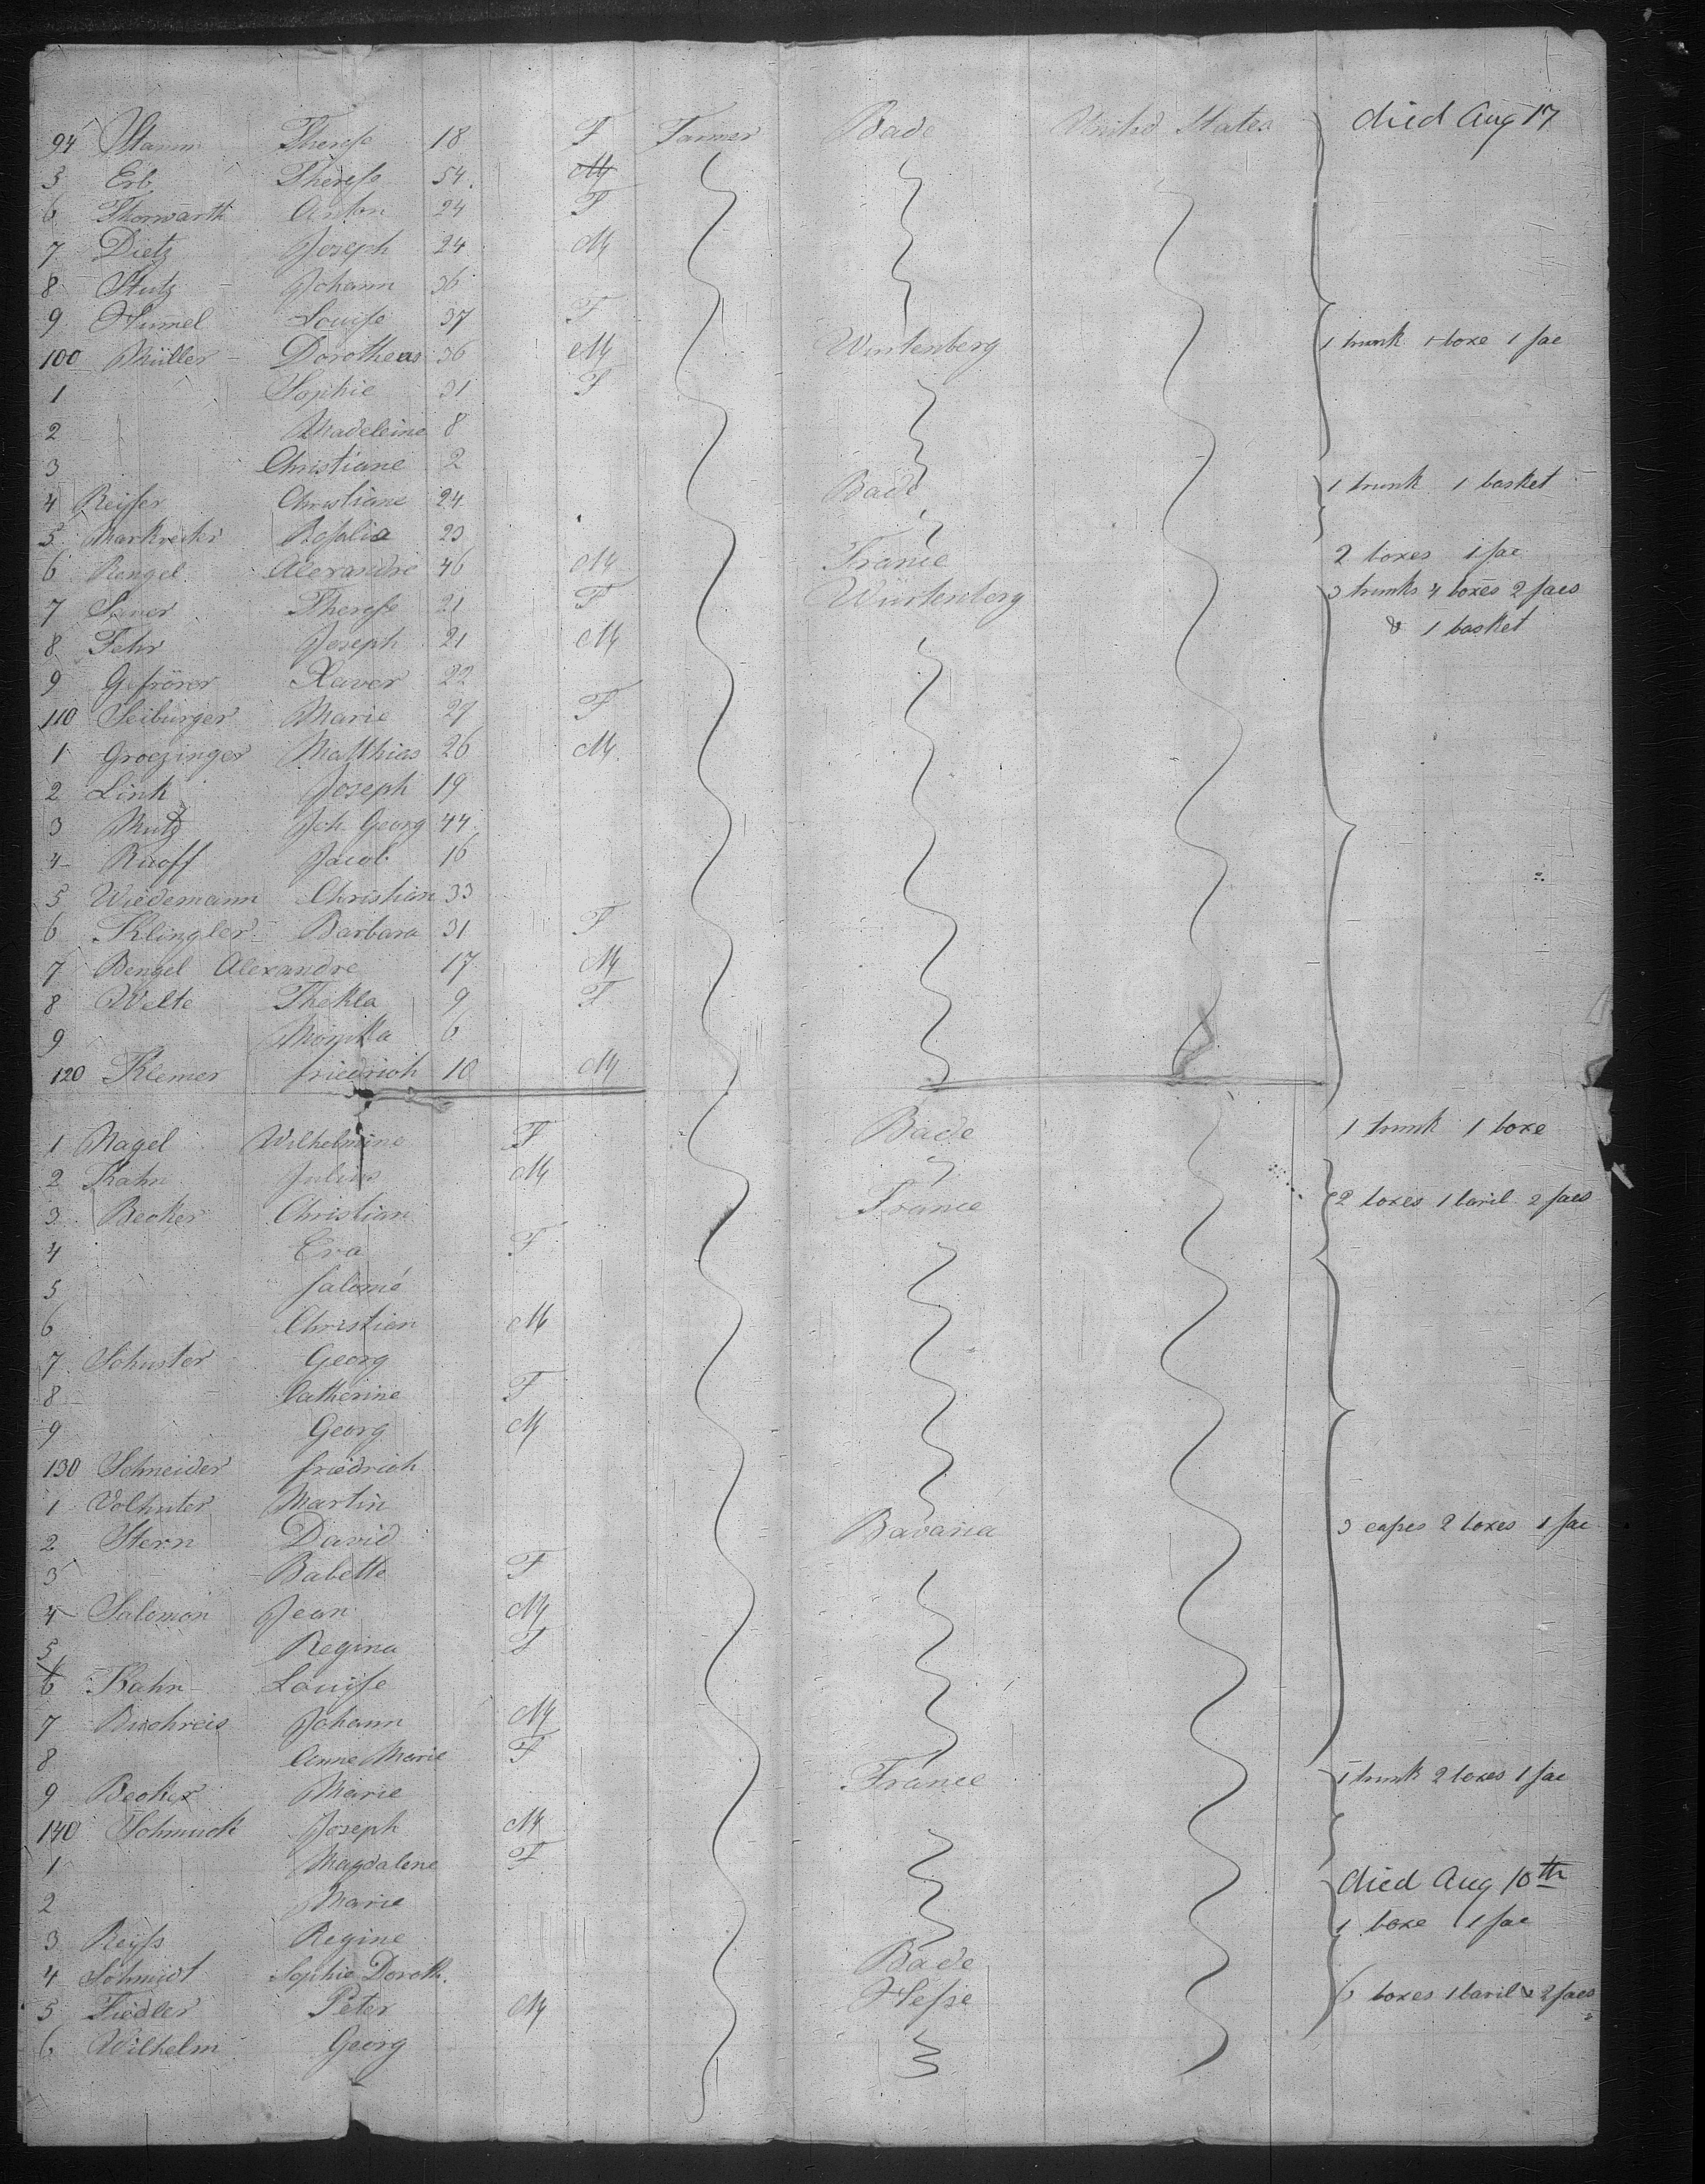 94 Stamm Therese 18 F Farmer Bade United States died Aug 17
5 Erb Therese 54. M
6 Thorwarth Anton 24 F
7 Dietz Joseph 24 M
8 Stutz Johann 36
9 Humel Louise 37 F
100 Müller Dorotheas 36 M Wurtenberg 1 trunk 1 boxe 1 sac
1 Sophie 31 F
2 Madeleine 8
3 Christiane 2
4 Reisser Christiane 24 Bade 1 trunk 1 basket
5 Rosalia 23
6 Rengel Alexandre 46 M France 2 boxes 1 sac
7 Sauer Therese 21 F Würtenberg 3 trunks 4 boxes 2 sacs
8 Fehr Joseph 21 M & 1 basket
9 Gfrörer Xaver 22
110 Seiburger Marie 27 F
1 Groezinger Matthias 26 M
2 Link Joseph 19
3 Mutz Joh Georg 44
4 Ruoff Jacob 16
5 Wiedemann Christian 33
6 Klingler Barbara 31 F
7 Bengel Alexandre 17 M
8 Welte Thekla 9 F
9 6
120 Klemer friedrich 10 M
1 Nagel Wilhelmine F Bade 1 trunk 1 boxe
2 Kahn Julius M
3 Becker Christian France 2 boxes 1 baril 2 sacs
4 Eva F
5 Salomé
6 Christian M
7 Schuster Georg
8 Catherine F
9 Georg M
130 Schneider friedrich
1 Volhuter Martin
2 Stern David Bavaria 3 cases 2 boxes 1 sac
3 Babette F
4 Salomon Jean M
5 Regina F
6 Kahn Louise
7 Buchreis Johann M
8 Anne Marie F
9 Becker Marie France 1 trunk 2 boxes 1 sac
140 Schmuck Joseph M
1 Magdalene F
2 Marie died Aug 10th
3 Reyss Regine 1 boxe 1 sac
4 Schmidt Sophie Doroth. Bade
5 Fiedler Peter M Hesse 6 boxes 1 baril & 2 sacs
6 Wilhelm Georg